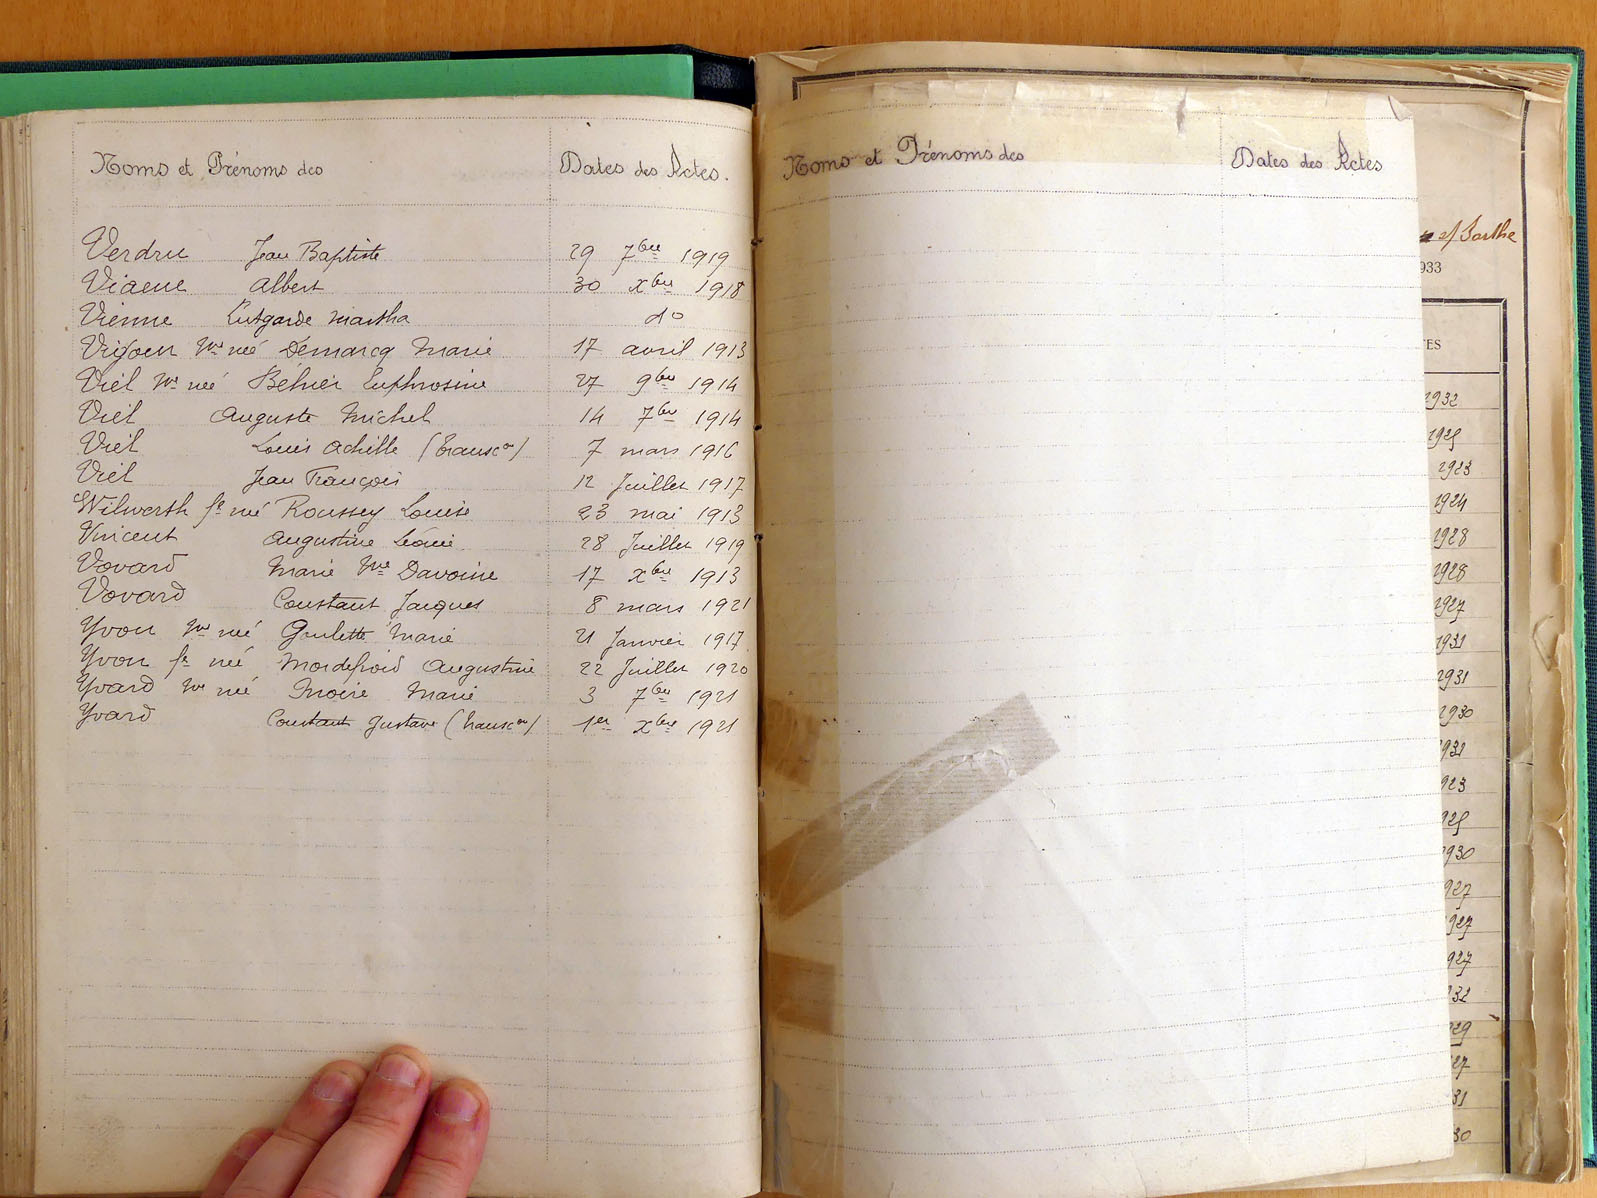 Noms et Prénoms des Dates des Actes.
Verdru Jean Baptiste 29 7bre 1919
Viaene Albert 30 xbre 1918
Vienne Lutgarde Martha do
Vigoen Vve née Démarcq Marie 17 avril 1913
Viel Vve née Béhier Euphrosine 27 9bre 1914
Viel Auguste Michel 14 7bre 1914
Viel Louis Achille (transcon) 7 mars 1916
Viel Jean François 12 Juillet 1917
Wilwerth fe née Roussey Louise 23 mai 1913
Vincent Augustine Léonie 28 Juillet 1919
Vovard Marie Vve Davoine 17 xbre 1913
Vovard Constant Jacques 8 mars 1921
Yvon Vve née Goulette Marie 21 Janvier 1917
Yvon fe née Mordefroid Augustine 22 Juillet 1920
Yvard Vve née Moire Marie 3 7bre 1921
Yvard Constant Gustave (transcon) 1er xbre 1921
Noms et Prénoms des Dates des Actes
s/ Sarthe
933
TES
1932
1925
1923
1924
1928
1928
1927
1931
1931
1930
931
923
925
930
927
927
927
32
29
27
31
30